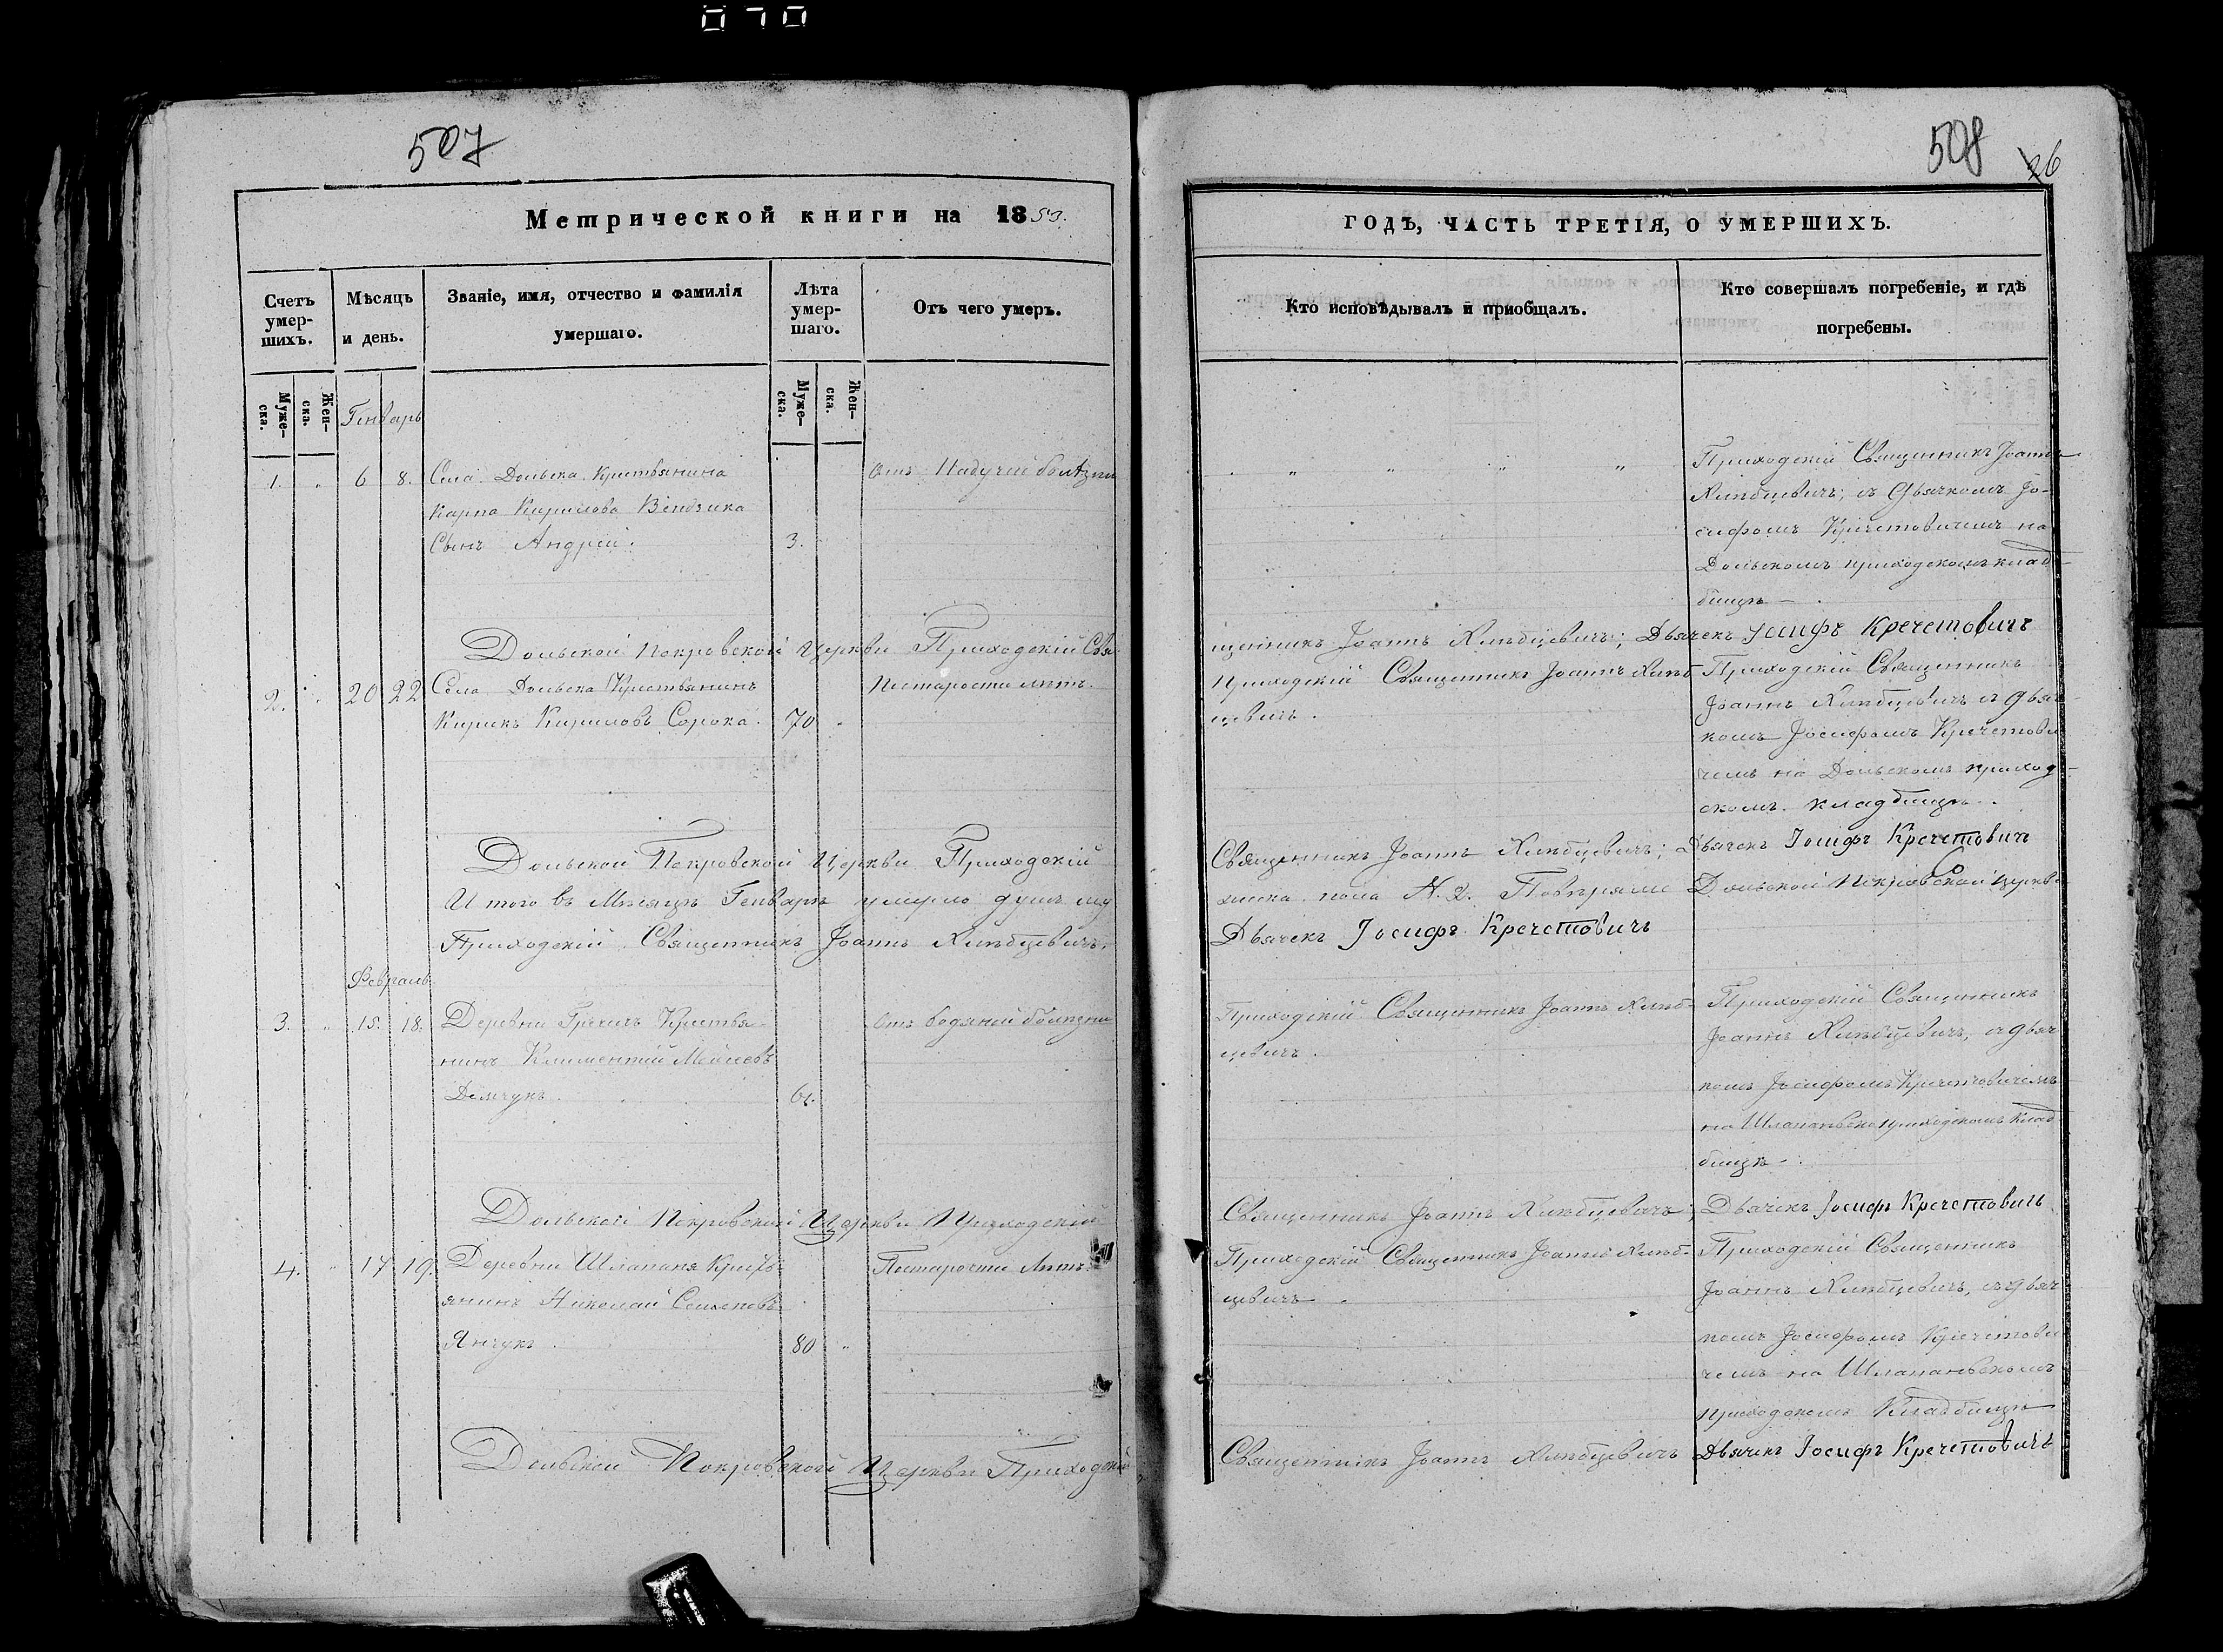 070
507
Метрической книги на 1853.
Счетъ умер-шихъ.
Мѣсяцъ и день.
Званіе, имя, отчество и фамилія умершаго.
Лѣта умер-шаго.
Отъ чего умеръ.
Муже-ска.
Жен-ска.
Муже-ска.
Жен-ска.
Генварь
1. 6 8. Села Дольска Крестьянина Отъ Падучей болѣзни
Карпа Кирилова
Сынъ Андрей. 3.
Дольской Покровской Церкви Приходскій Свя-
2. 20 22 Села Дольска Крестьянинъ По старости лѣтъ.
Кирикъ Кириловъ Сорока. 70
Дольской Покровской Церкви Приходскій
И того въ Мѣсяцѣ Генварѣ умерло душъ му
Приходскій Священникъ Іоаннъ Хлѣбцевичъ.
Февраль
3. 15. 18. Деревни Гречихъ Крестья- Отъ водяной болѣзни
нинъ Климентій Мойсеевъ
Демчукъ.
Дольской Покровской Церкви Приходскій
4. 17 19. Деревни Шлапаня Кресть- По старости Лѣтъ.
янинъ Николай Семеновъ
Янчукъ. 80
Дольской Покровской Церкви Приходскій
508
26
ГОДЪ, ЧАСТЬ ТРЕТІЯ, О УМЕРШИХЪ.
Кто исповѣдывалъ и пріобщалъ.
Кто совершалъ погребеніе, и гдѣ погребены.
Приходскій Священникъ Іоаннъ
Хлѣбцевичъ, съ Дьячкомъ Іо-
сифомъ Кречетовичемъ на
Дольскомъ приходскомъ клад-
бищѣ
щенникъ Іоаннъ Хлѣбцевичъ; Дьячекъ Іосифъ Кречетовичъ
Приходскій Священникъ Іоаннъ Хлѣб- Приходскій Священникъ
цевичъ. Іоаннъ Хлѣбцевичъ съ дьяч-
комъ Іосифомъ Кречетови
чемъ на Дольскомъ приход-
скомъ кладбищѣ.
Священникъ Іоаннъ Хлѣбцевичъ; Дьячекъ Іосифъ Кречетовичъ
жска пола N. 2. Повѣряли Дольской Покровской Церкви
Дьячекъ Іосифъ Кречетовичъ
Приходскій Священникъ Іоаннъ Хлѣб- Приходскій Священникъ
цевичъ. Іоаннъ Хлѣбцевичъ, съ дьяч
комъ Іосифомъ Кречетовичемъ
на приходскомъ Клад
бищѣ.
Священникъ Іоаннъ Хлѣбцевичъ; Дьячекъ Іосифъ Кречетовичъ
Приходскій Священникъ Іоаннъ Хлѣб- Приходскій Священникъ
цевичъ. Іоаннъ Хлѣбцевичъ, съ дьяч
комъ Іосифомъ Кречетови
чемъ на Шлапаньскомъ
приходскомъ Кладбищѣ
Священникъ Іоаннъ Хлѣбцевичъ Дьячекъ Іосифъ Кречетовичъ